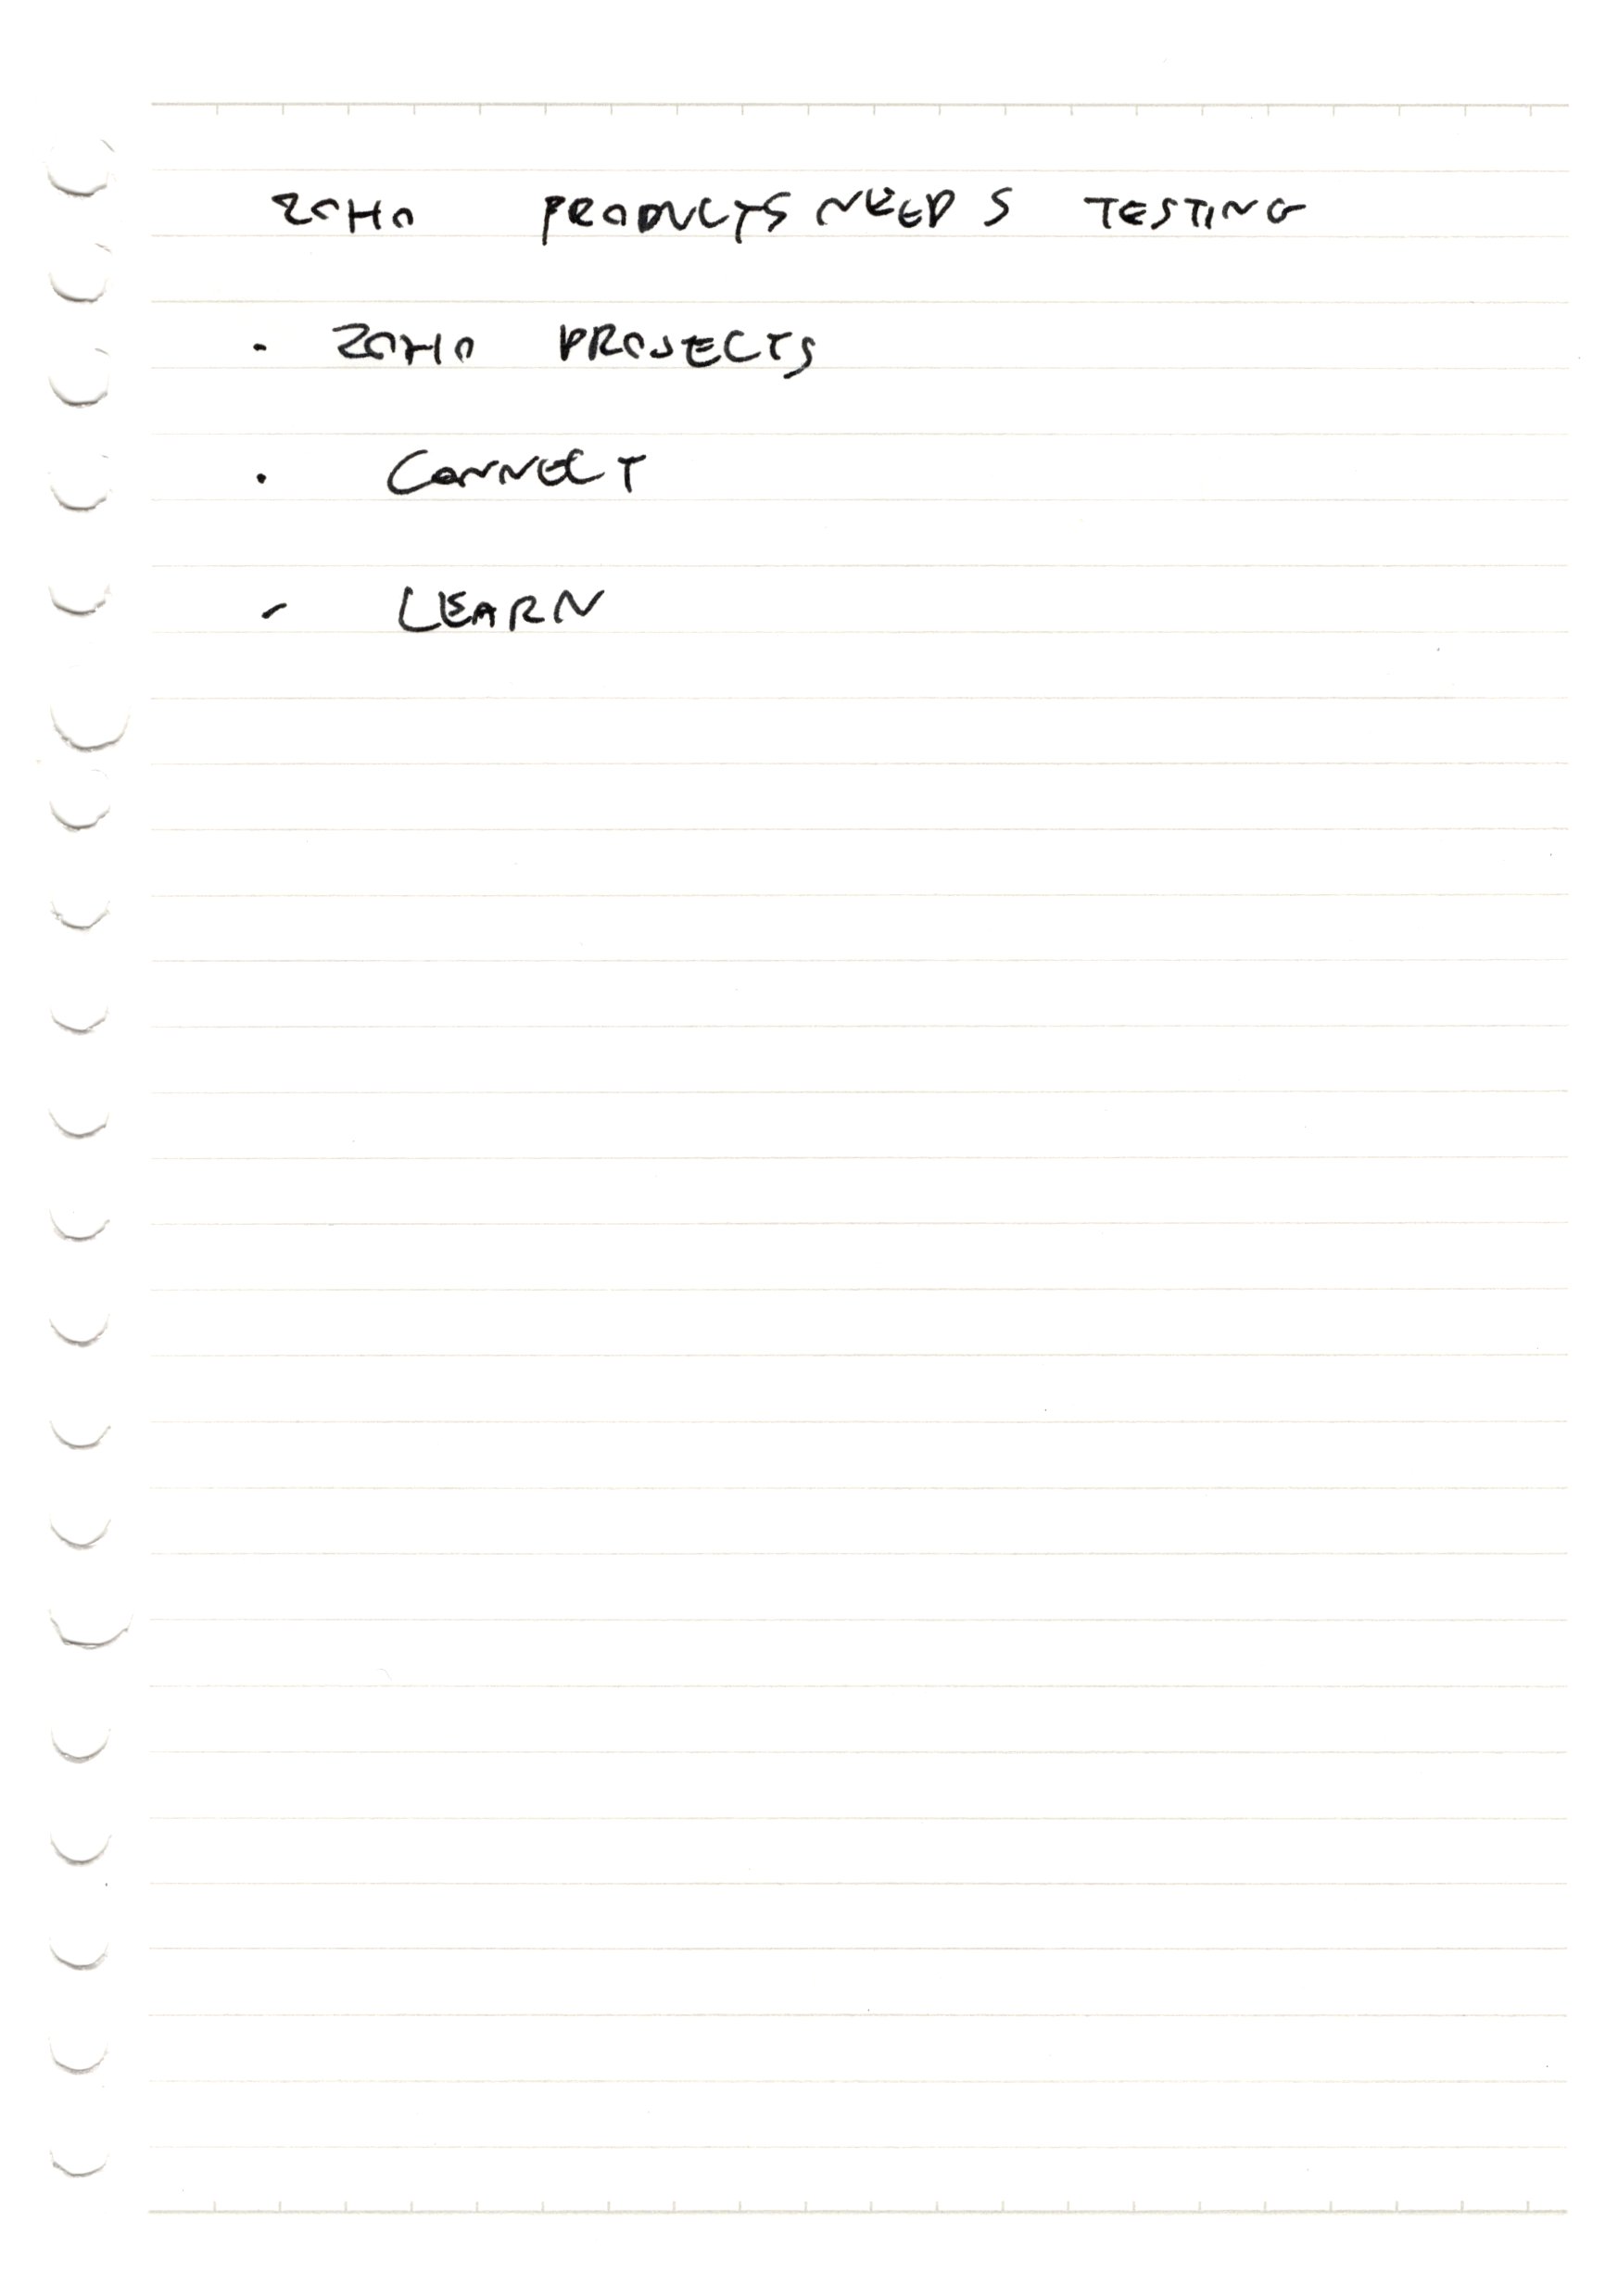 ZOHO PRODUCTS NEEDS TESTING
· ZOHO PROJECTS
· CONNECT
- LEARN